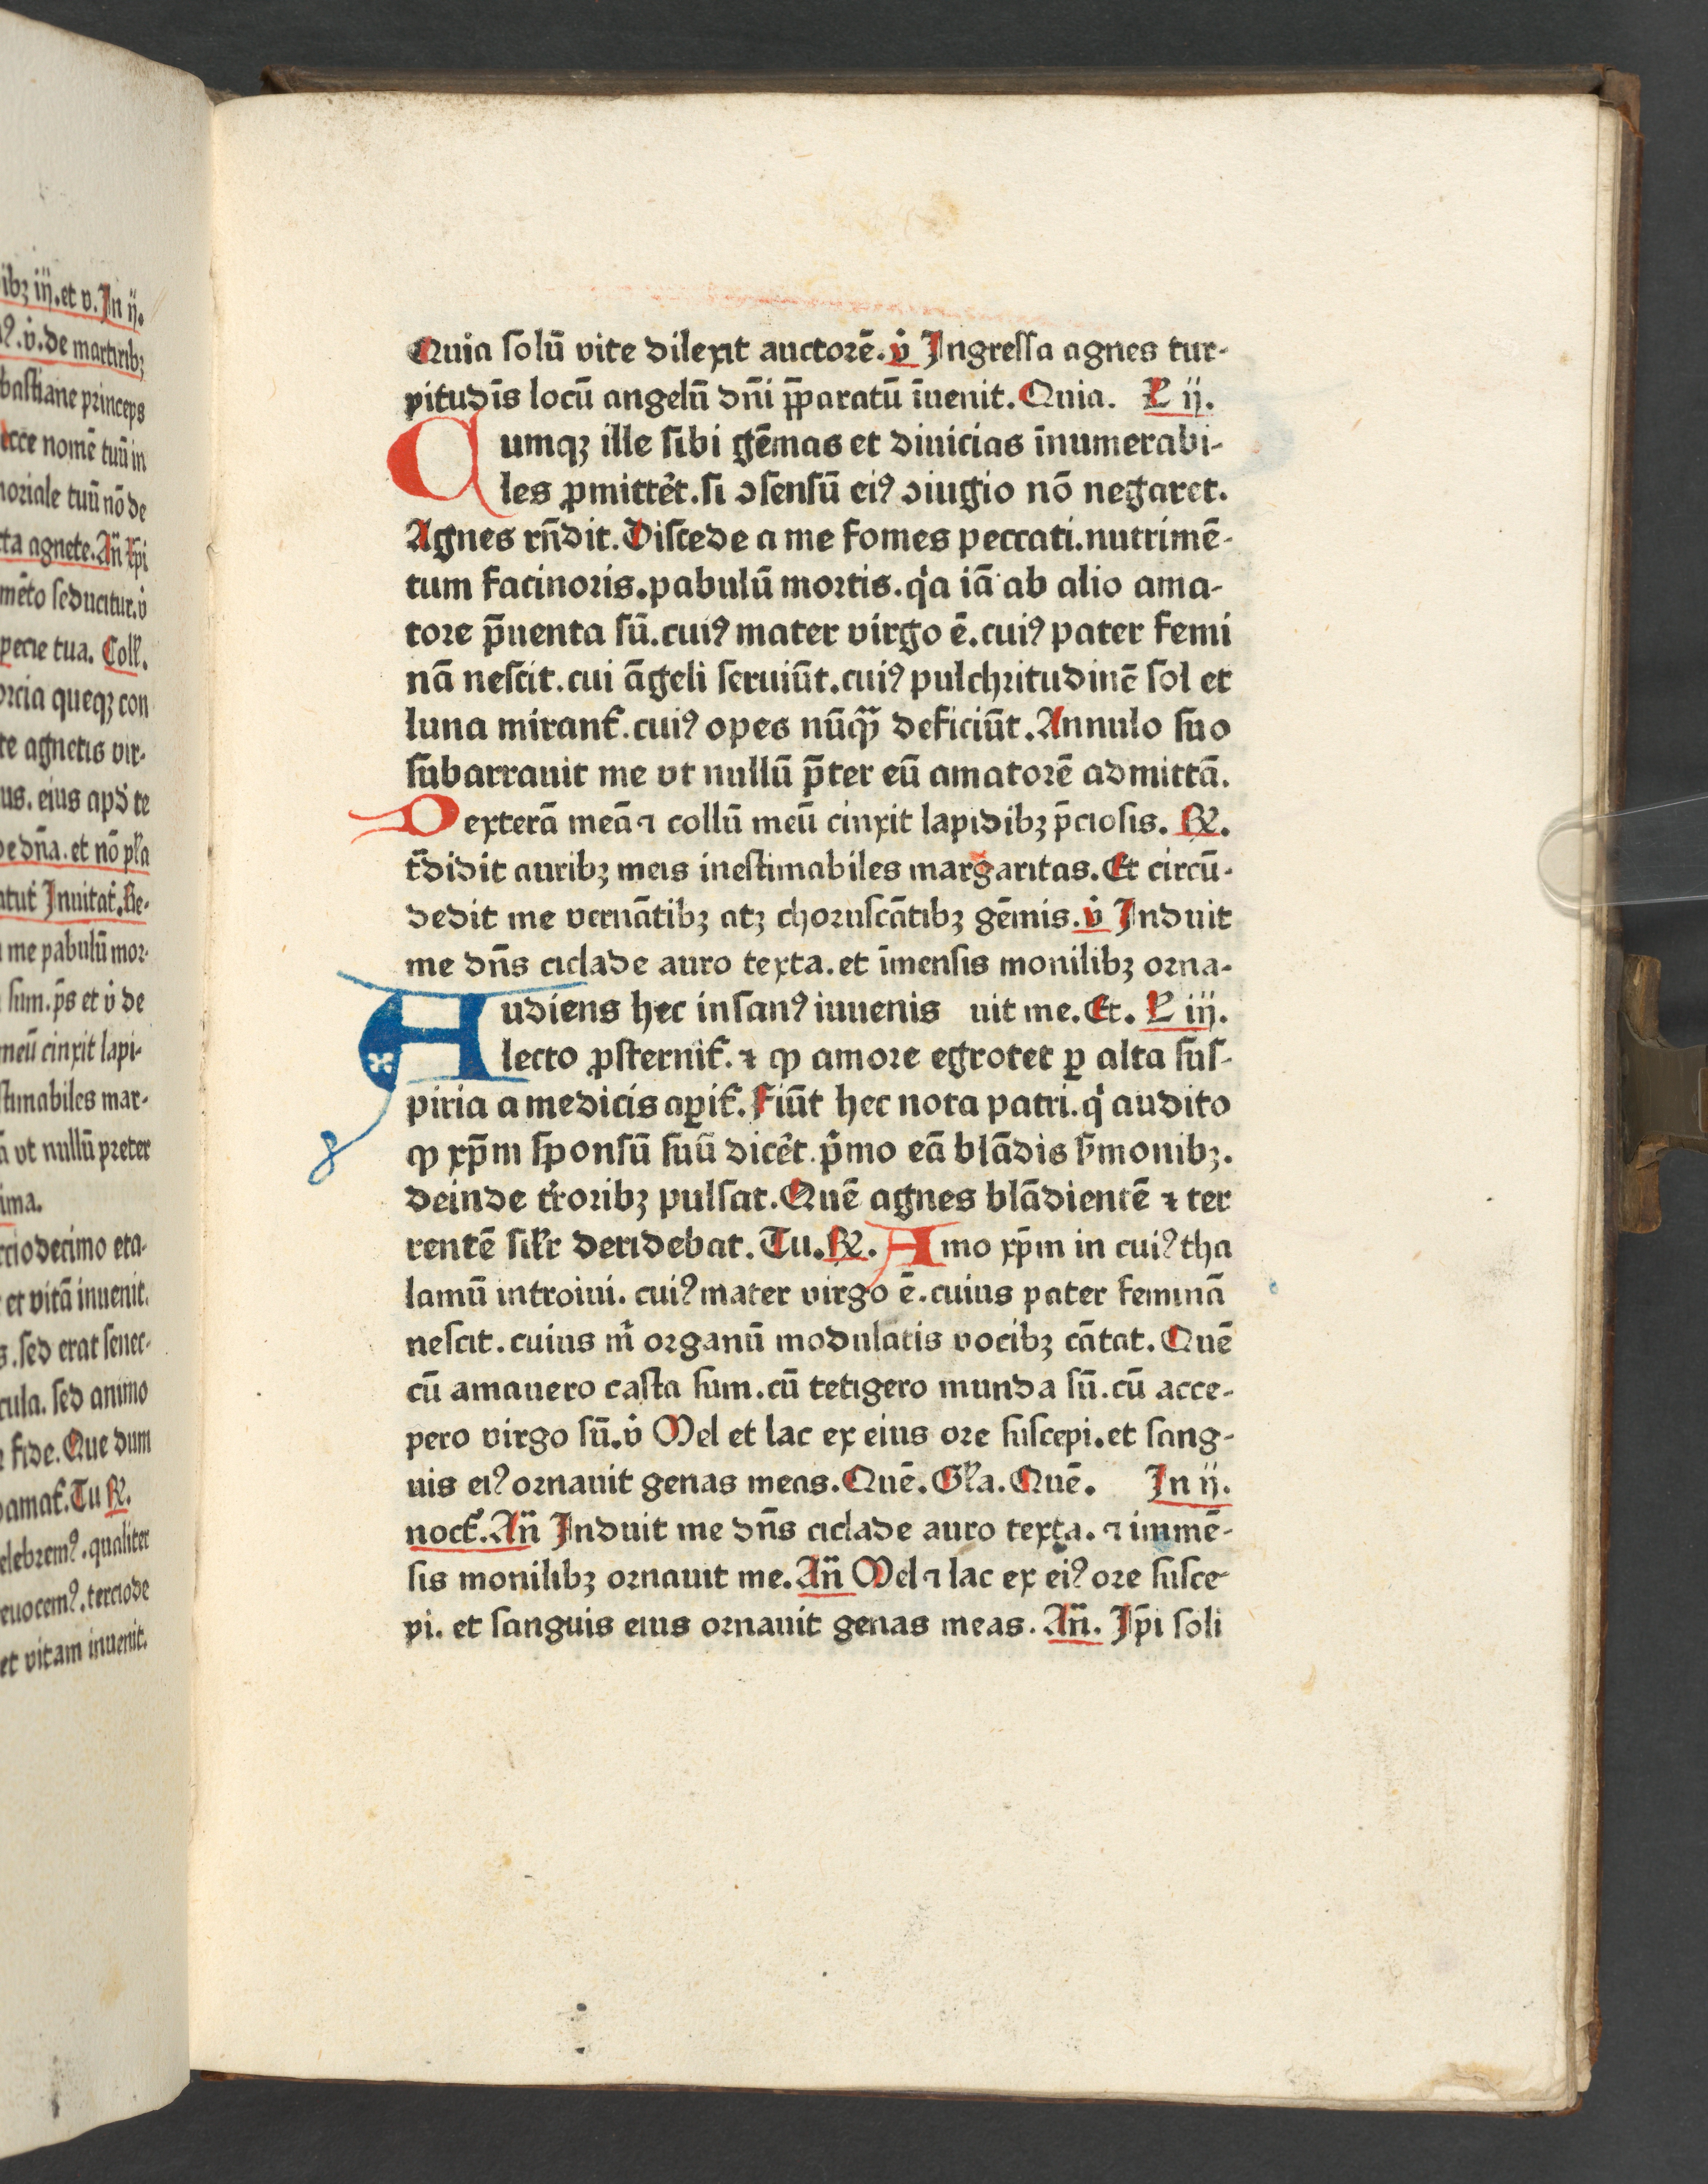 ibꝫ iij. et v. In ij.
ꝰ. v̇. de martirib;
bastiane princeps
ecce nomē tuū in
moriale tuū nō de
cta agnete. An̄ Xp̄i
mēto seducitur. v̇
specie tua. Coll̄.
forcia queqꝫ con
te agnetis vir-
us. eius apd̄ te
de dn̄a. et nō pl̄a
Inuitat̄. Re-
me pabulū mor-
sum. p̄s et v̇ de
meū cinxit lapi-
stimabiles mar-
ā vt nullū preter
ima.
rcio decimo eta-
et vitā inuenit.
s. sed erat senec-
cula. sed animo
fide. Que dum
amat̄. Tu R̷.
elebremꝰ. qualiter
euocemꝰ. tercio de
et vitam inuenit.
Quia solū vite dilexit auctorē. v̇ Ingressa agnes tur-
pitudīs locū angelū dn̄i p̄paratū īuenit. Quia. L ij.
Cumqꝫ ille sibi gēmas et diuicias īnumerabi-
les ꝓmittēt. si ↄsensū eiꝰ ↄiugio nō negaret.
Agnes rn̄dit. Discede a me fomes peccati. nutrimē-
tum facinoris. pabulū mortis. q̇a iā ab alio ama-
tore p̄uenta sū. cuiꝰ mater virgo ē. cuiꝰ pater femi
nā nescit. cui āgeli seruiūt. cuiꝰ pulchritudinē sol et
luna mirant̄. cuiꝰ opes nūqᷓ deficiūt. Annulo suo
subarrauit me vt nullū p̄ter eū amatorē admittā.
Dexterā meā ⁊ collū meū cinxit lapidibꝫ p̄ciosis. R̷.
t̄didit auribꝫ meis inestimabiles margaritas. Et circū-
dedit me vernātibꝫ atꝫ choruscātibꝫ gēmis. v̇ Induit
me dn̄s ciclade auro texta. et īmensis monilibꝫ orna-
Audiens hec insanꝰ iuuenis uit me. Et. L iij.
lecto ꝓsternit̄. ⁊ ꝙ amore egrotet ꝑ alta sus-
piria a medicis aꝑit̄. Fiūt hec nota patri. q̇ audito
ꝙ xp̄m sponsū suū dicēt. ṗmo eā blādis s̄monibꝫ.
deinde t̄roribꝫ pulsat. Quē agnes blādientē ⁊ ter
rentē sil̄r deridebat. Tu. R̷. Amo xp̄m in cuiꝰ tha
lamū introiui. cuiꝰ mater virgo ē. cuius pater feminā
nescit. cuius m̄ organū modulatis vocibꝫ cātat. Quē
cū amauero casta sum. cū tetigero munda sū. cū acce-
pero virgo sū. v̇ Mel et lac ex eius ore suscepi. et sang-
uis eiꝰ ornauit genas meas. Quē. Gl̄a. Quē. In ij.
noct̄. An̄ Induit me dn̄s ciclade auro texta. ⁊ immē-
sis monilibꝫ ornauit me. An̄ Mel ⁊ lac ex eiꝰ ore susce-
pi. et sanguis eius ornauit genas meas. An̄. Ip̄i soli